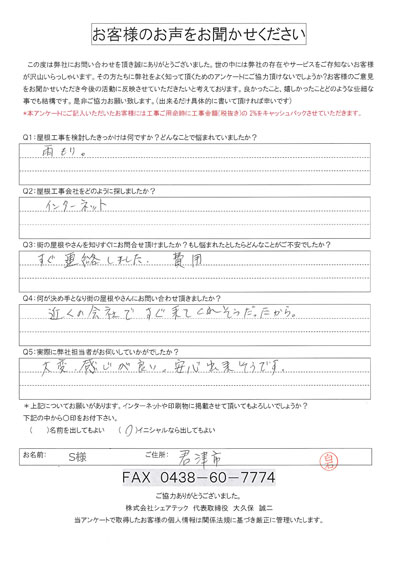 お客様のお声をお聞かせください
この度は弊社にお問い合わせを頂き誠にありがとうございます。世の中には弊社の存在やサービスをご存知ないお客様
が沢山いらっしゃいます。その方たちに弊社をよく知って頂くためのアンケートにご協力頂けないでしょうか?お客様のご意見
をお聞かせいただき今後の活動に反映させていただきたいと考えております。良かったこと、嬉しかったことどのような些細な
事でも結構です。是非ご協力お願い致します。(出来るだけ具体的に書いて頂ければ幸いです)
*本アンケートにご記入いただいたお客様には工事ご用命時に工事金額(税抜き)の 2%をキャッシュバックさせていただきます。
Q1:屋根工事を検討したきっかけは何ですか?どんなことで悩まれていましたか?
雨もり。
Q2:屋根工事会社をどのように探しましたか?
インターネット
Q3:街の屋根やさんを知りすぐにお問合せ頂けましたか?もし悩まれたとしたらどんなことがご不安でしたか?
すぐ連絡しました. 費用
Q4:何が決め手となり街の屋根やさんにお問い合わせ頂きましたか?
近くの会社ですぐ来てくれそうだ。たから。
Q5:実際に弊社担当者がお伺いしていかがでしたか?
大変.感じが良い。安心出来そうです。
*上記についてお願いがあります。インターネットや印刷物に掲載させて頂いてもよろしいでしょうか?
下記の中から〇印をお付下さい。
( )名前を出してもよい (〇)イニシャルなら出してもよい
お名前: S様 ご住所: 君津市
FAX 0438-60-7774
ご協力ありがとうございました。
株式会社シェアテック 代表取締役 大久保 誠二
当アンケートで取得したお客様の個人情報は関係法規に基づき厳正に管理いたします。